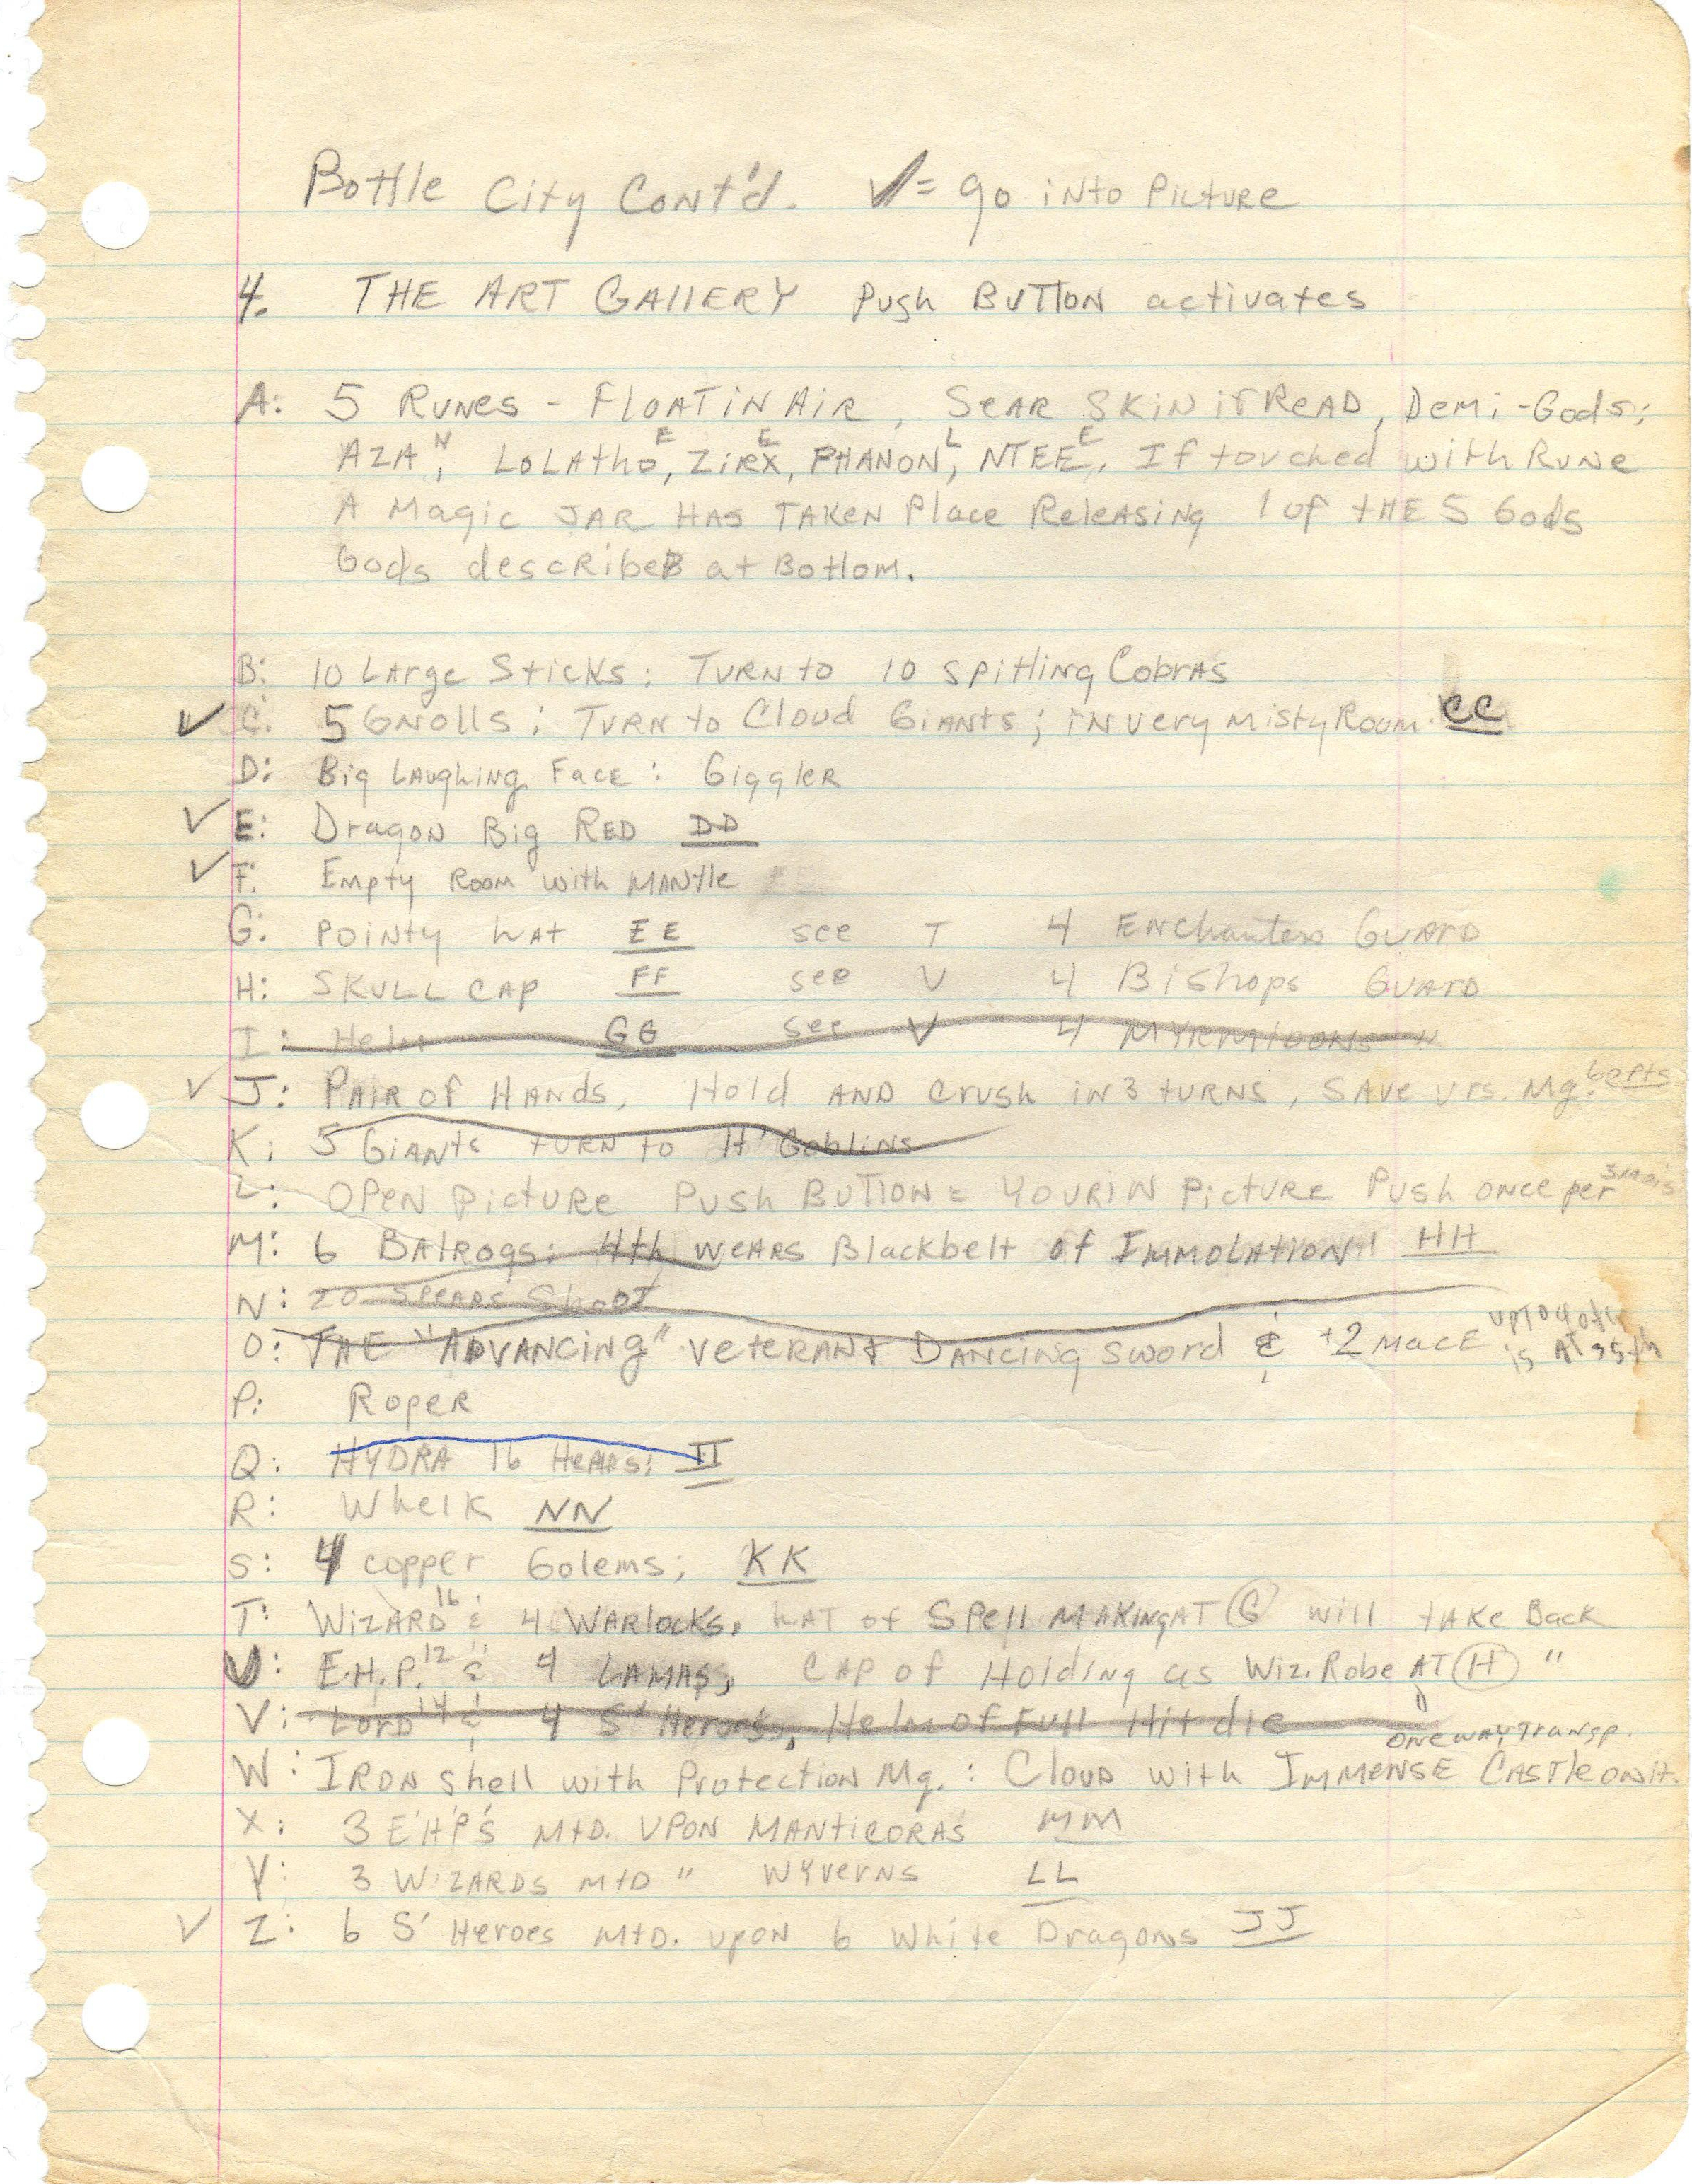 Bottle City Cont'd. ✓= go into Picture
4. THE ART GAllERY Push BUTTON activates
A: 5 RUNES - FLOAT iN AiR, SEAR SKiN if READ, DEMi-Gods:
AZA N, LOLAthO E, ZiRX E, PHANON L, NTEE E, If touched with RUNE
A Magic JAR HAS TAKEN Place Releasing 1 of tHE 5 Gods
Gods described at Bottom.
B: 10 LArge Sticks: TURN to 10 spitting CobrAs
✓ C: 5 GNolls: TURN to Cloud GiANts; iN very misty Room. CC
D: Big LAughiNg FacE: GigglER
✓ E: DragoN Big RED DD
✓ F: Empty Room with MANtle
G: POiNty hAt EE see T 4 ENchanters GUARD
H: SKULL CAP FF see V 4 Bishops GUARD
I: Helm GG see V 4 MYRMIDONS "
✓ J: PAIR of HANDs, Hold AND crush iN 3 tURNS, SAve vrs. Mg. 60 pts
K: 5 GiANts tURN to H' GoblINs
L: OPEN Picture Push BUTTON = YOUR IN PictURE Push ONCE per 3 mo's
M: 6 BAlrogs: 4th WEARS Blackbelt of IMMOLAtiON! HH
N: 20 SPEARS ShOOT
O: THE "ADVANCING" VETERAN & DANCiNg sword & +2 MACE up to 40th is AT 35th
P: Roper
Q: HYDRA 16 HEADS: II
R: Whelk NN
S: 4 copper Golems; KK
T: WizARD 16 & 4 WARlocks, hAT of SPell MAKINg AT G will tAKE Back
U: E.H.P. 12 & 4 LAMAS, CAP of HoldiNg as Wiz. Robe AT H "
V: LORD 14 & 4 S' Heroes, Helm of Full Hit die "
one way Transp.
W: IRON shell with Protection Mg.: CloUD with IMMENSE CASTle on it.
X: 3 E'H'P'S MtD. UPON MANticORAS MM
Y: 3 WIZARDS MtD " WYverNS LL
✓ Z: 6 S' Heroes MtD. upoN 6 White Dragons JJ